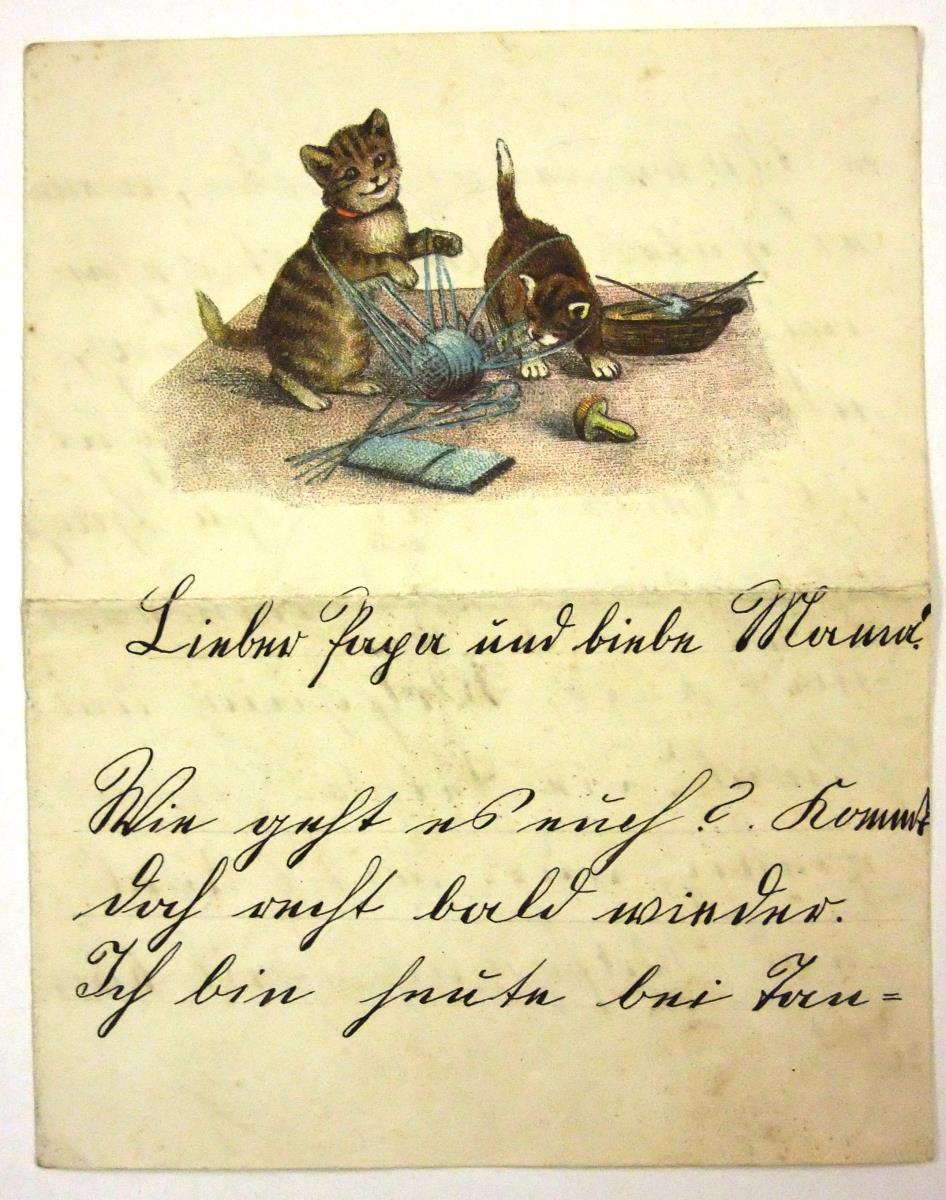 Lieber Papa und liebe Mama!
Wie geht es euch?. Kommt
doch recht bald wieder.
Ich bin heute bei Tan=